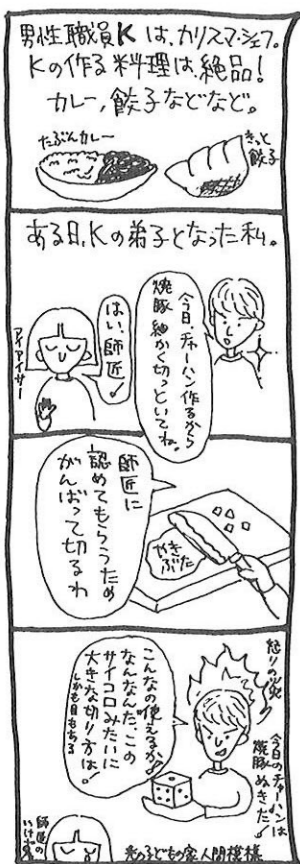 男性職員Kは、カリスマシェフ。
Kの作る料理は、絶品！
カレー、餃子などなど。
たぶんカレー
きっと
餃子
ある日、Kの弟子となった私。
今日、チャーハン作るから
焼豚細かく切っといてね。
はい、師匠！
アイアイサー
師匠に
認めてもらうため
がんばって切るわ
やき
ぶた
怒りの炎
今日のチャーハンは
焼豚ぬきだ！
こんなの使えるか！
なんなんだ、この
サイコロみたいに
大きな切り方は！
しかも目もある
師匠の
いけず
光の子どもの家人間模様